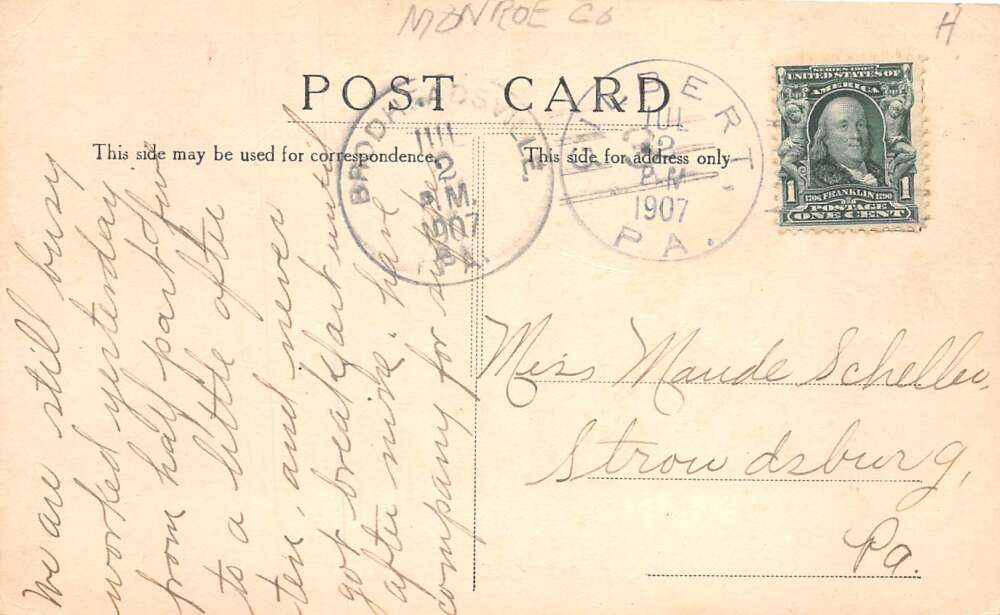 MONROE CO
H
POST CARD
This side may be used for correspondence.
This side for address only
BRODHEADSVILLE,
JUL
2
A.M.
1907
PA.
JUL
2
P.M
1907
PA.
SERIES 1902
UNITED STATES OF
AMERICA
1 1706 FRANKLIN 1790 1
POSTAGE
ONE CENT
We are still busy
worked yesterday
from half past five
to a little after
ten, and never
got breakfast until
after nine. have
company for supper
Miss Maude Scheller,
Stroudsburg,
Pa.